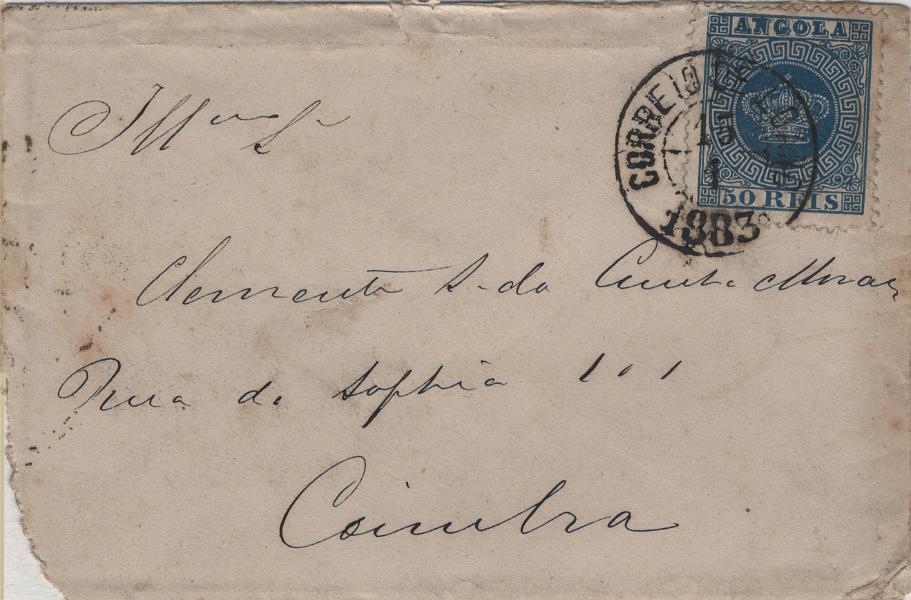 ANGOLA
50 REIS
CORREIO DE
1
1883
Illmo Sr
Clemente S. da Cunha Moraes
Rua da Sophia 101
Coimbra